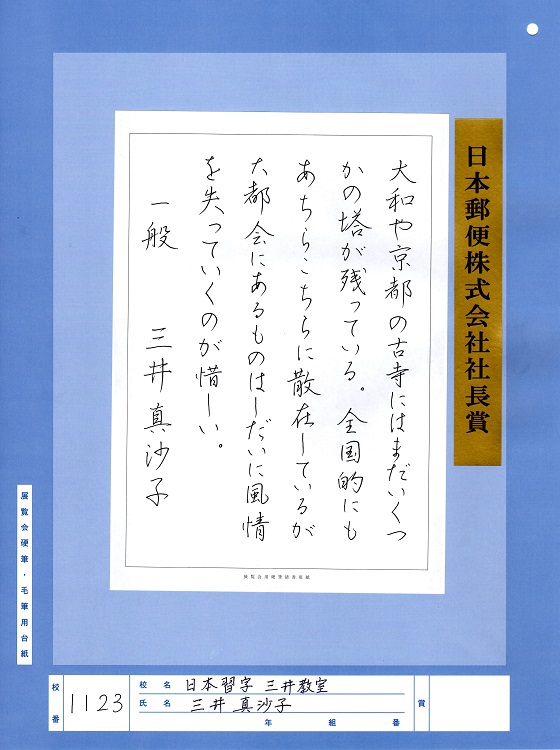 日本郵便株式会社社長賞
大和や京都の古寺にはまだいくつ
かの塔が残っている。全国的にも
あちらこちらに散在しているが
大都会にあるものはしだいに風情
を失っていくのが惜しい。
一般 三井真沙子
展覧会用硬筆清書用紙
展覧会硬筆・毛筆用台紙
校番 1123
校名 日本習字 三井教室
氏名 三井 真沙子
年 組 番
賞